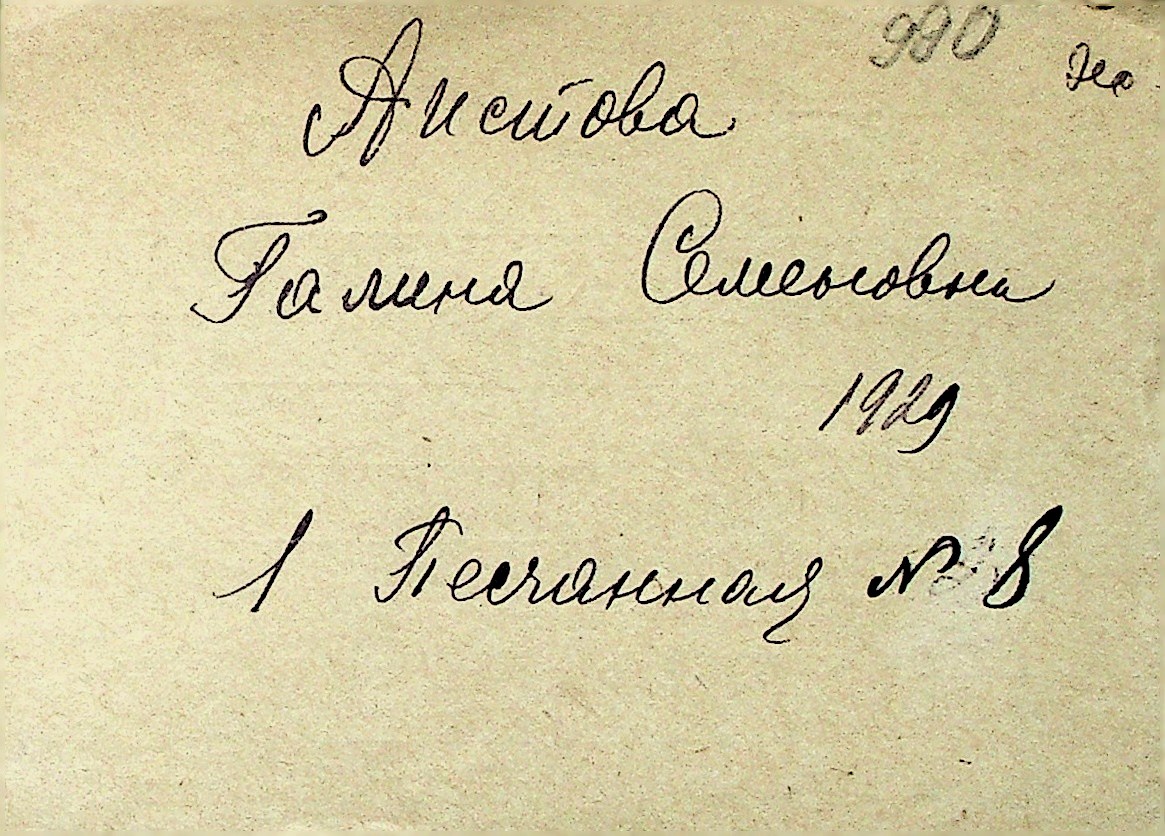 990
Аистова
Галина Семеновна
1929
1 Песчанная № 8